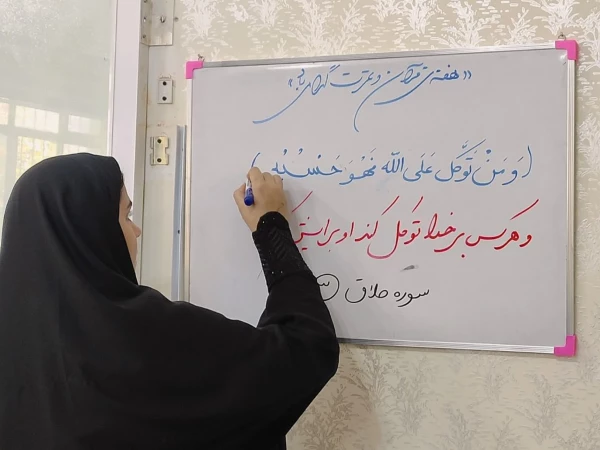 «هفته‌ی قرآن و عترت گرامی باد»
(وَ مَنْ تَوَکَّل عَلَی اللّه فَهُوَ حَسْبُهُ)
و هر کس بر خدا توکل کند او برایش
سوره طلاق ۳